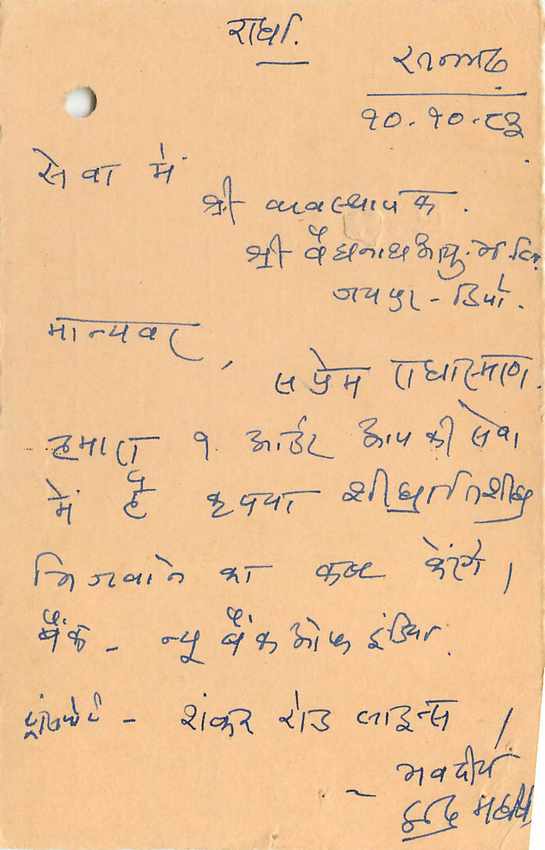 राधा.
१०.१०.८३
सेवा में
श्री व्यवस्थापक.
श्री वैद्यनाथ आयु.
जयपुर - डिपो.
मान्यवर,
सप्रेम राधास्मरण.
हमारा १ आर्डर आप की सेवा
में है कृपया शीघ्रातिशीघ्र
भिजवाने का कष्ट करेंगे।
बैंक - न्यू बैंक ऑफ इंडिया.
ट्रांसपोर्ट - शंकर रोड लाइन्स।
भवदीय